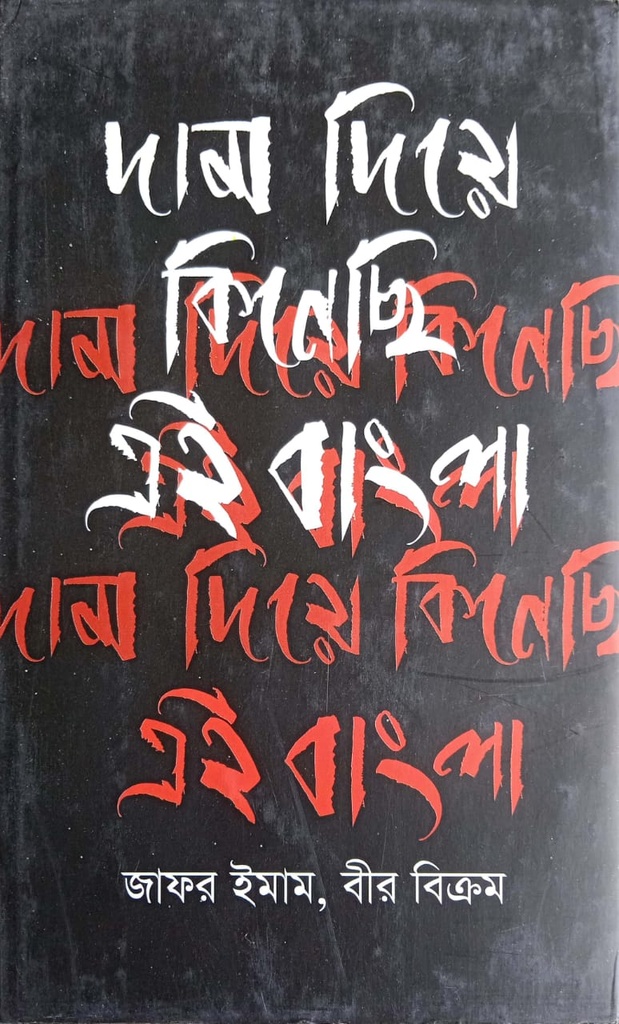 দাম দিয়ে
কিনেছি
দাম দিয়ে কিনেছি
এই বাংলা
এই বাংলা
দাম দিয়ে কিনেছি
এই বাংলা
জাফর ইমাম, বীর বিক্রম